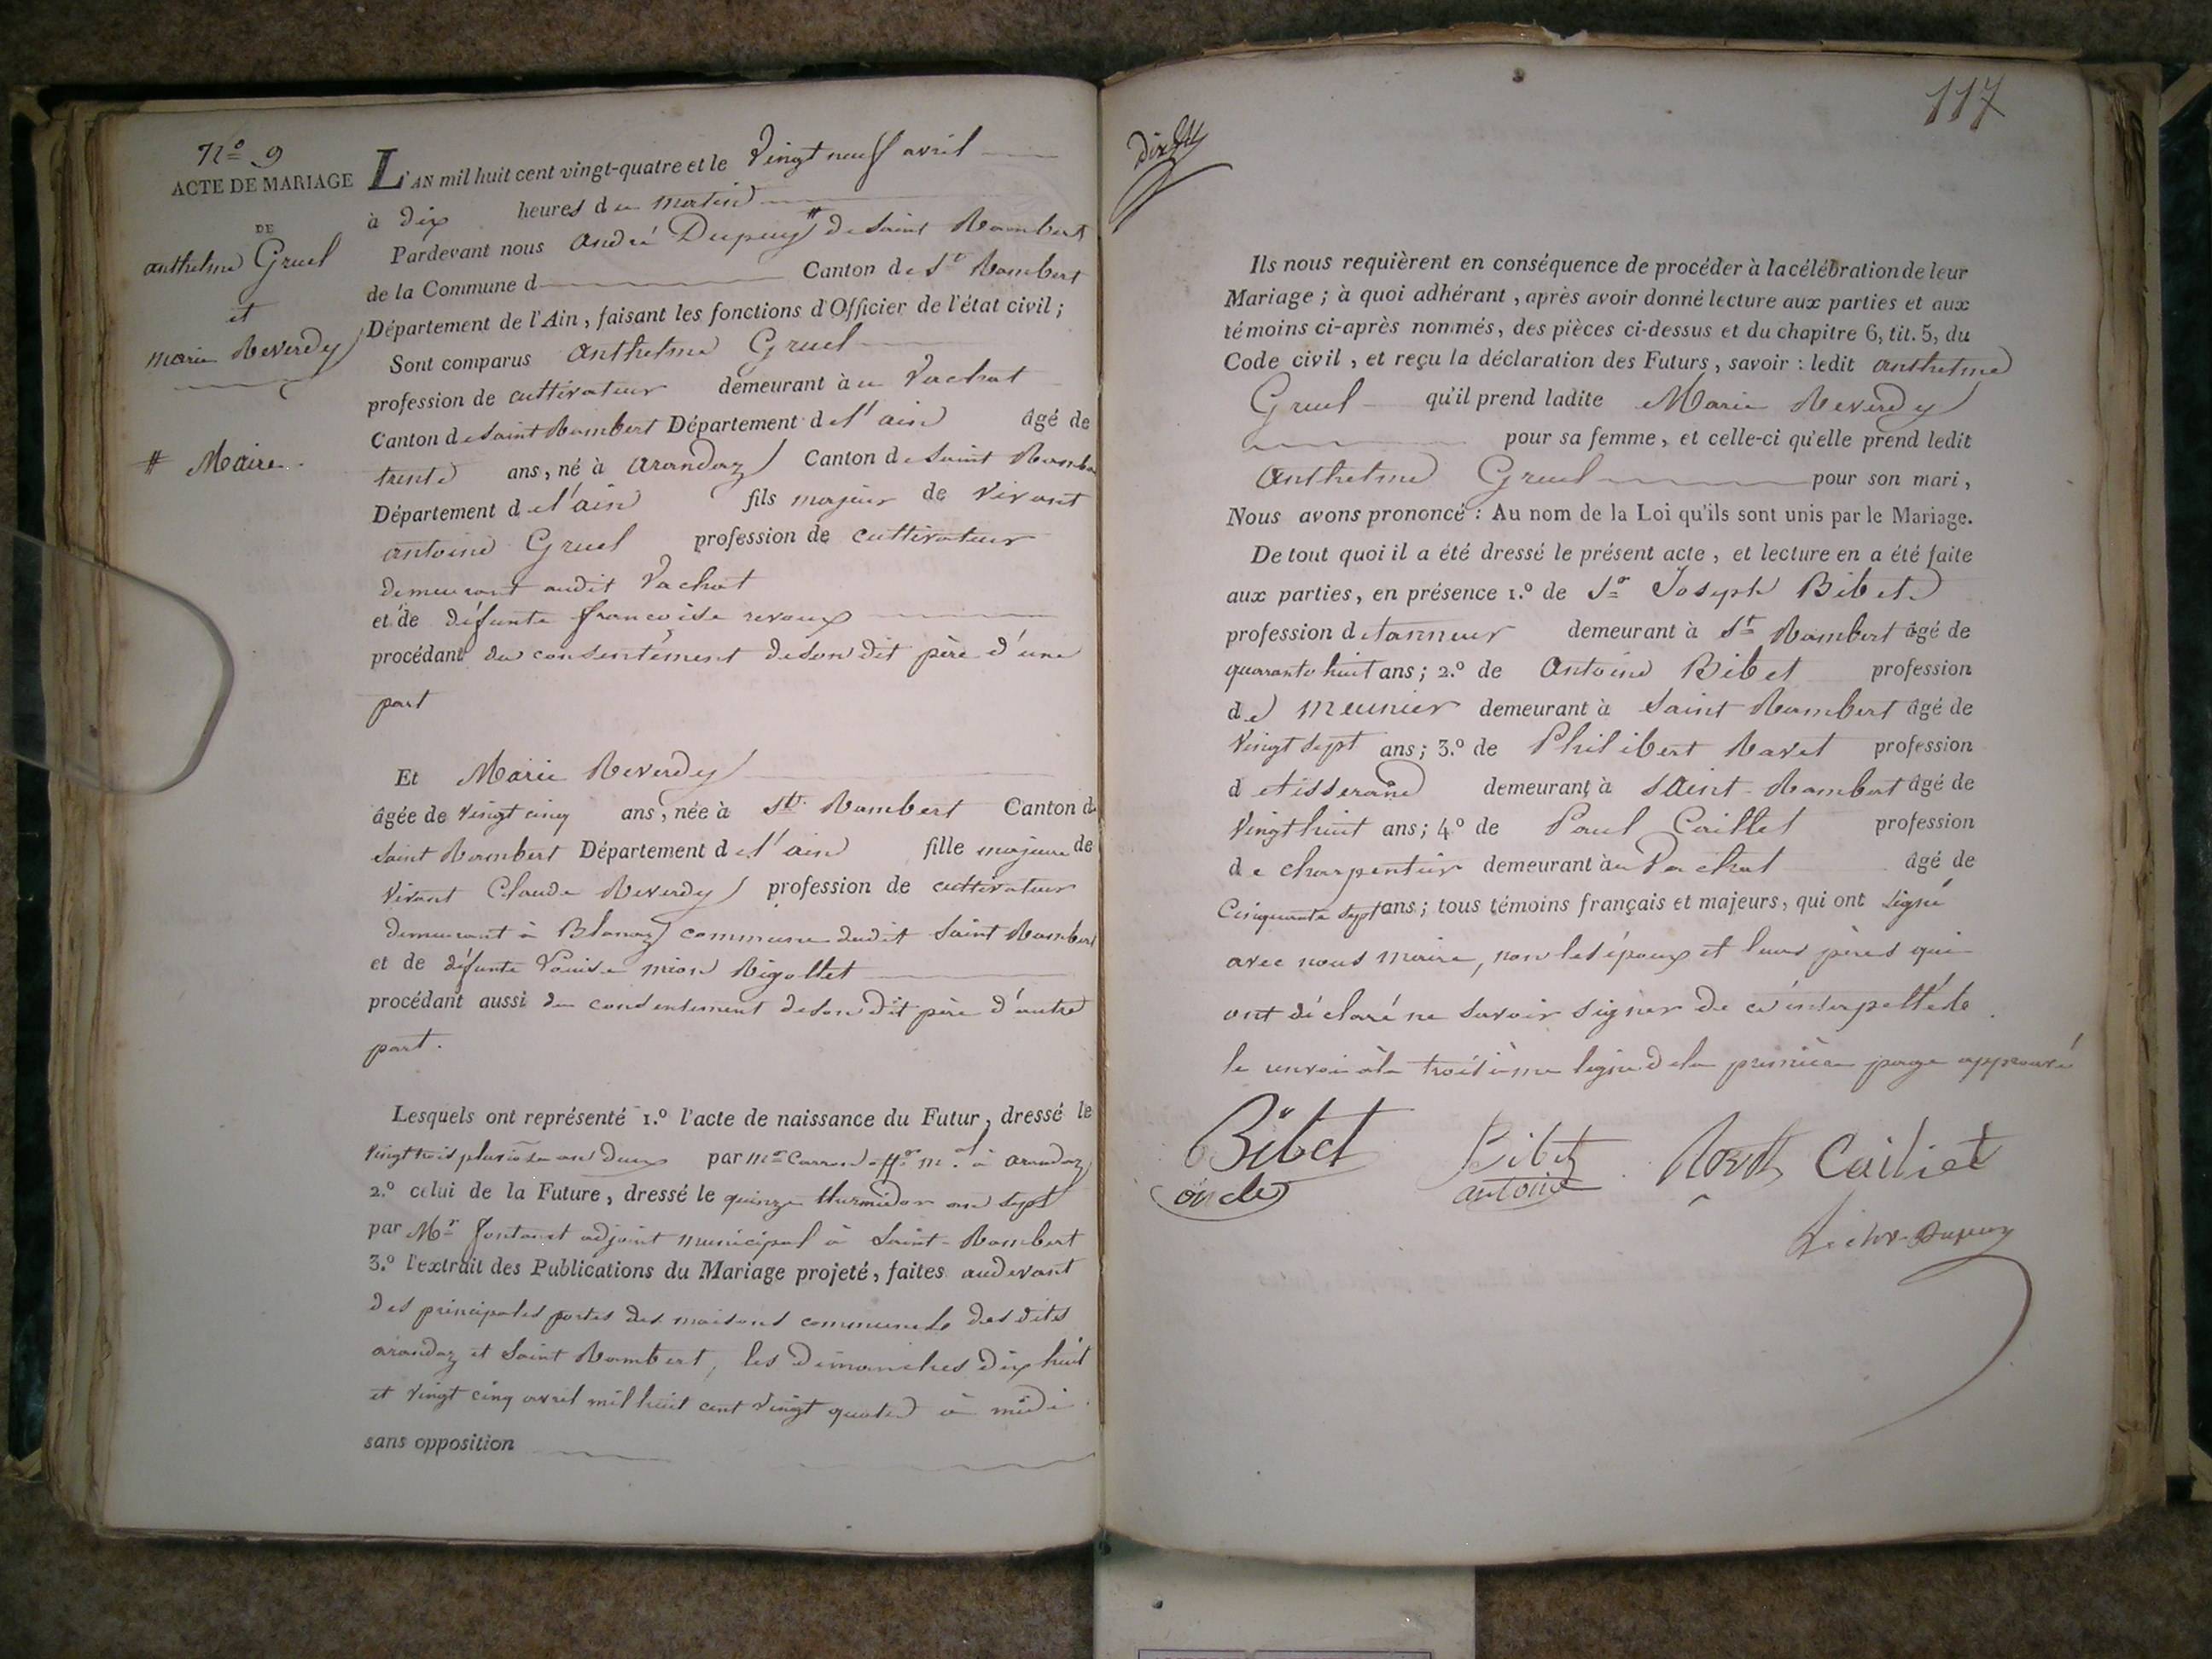 N.º 9
ACTE DE MARIAGE
DE
anthelme Gruel
et
marie Reverdy
# Maire.
L'AN mil huit cent vingt-quatre et le vingt neuf avril
à dix heures du matin
Pardevant nous André Dupuy # de saint Rambert
de la Commune d Canton de St Rambert
Département de l'Ain, faisant les fonctions d'Officier de l'état civil;
Sont comparus Anthelme Gruel
profession de cultivateur demeurant à u Vachat
Canton de saint Rambert Département de l'ain âgé de
trente ans, né à arandaz Canton de saint Ramber
Département de l'ain fils majeur de vivant
antoine Gruel profession de cultivateur
demeurant audit Vachat
et de défunte francoise revoux
procédant du consentement de son dit père d'une
part
Et Marie Reverdy
âgée de vingt cinq ans, née à St. Rambert Canton d
saint Rambert Département de l'ain fille majeure de
vivant Claude Reverdy profession de cultivateur
demeurant à Blanaz commune dudit saint Rambert
et de défunte Louise mion Rigollet
procédant aussi du consentement de son dit père d'autre
part.
Lesquels ont représenté 1.º l'acte de naissance du Futur, dressé le
vingt trois pluviose an deux par mr Carron offr. m.al à arandaz
2.º celui de la Future, dressé le quinze thermidor an sept
par Mr fontanet adjoint municipal à Saint-Rambert
3.º l'extrait des Publications du Mariage projeté, faites audevant
des principales portes des maisons communes des dites
arandaz et Saint Rambert, les dimanches dix huit
et vingt cinq avril mil huit cent vingt quatre à midi
sans opposition
117
Ils nous requièrent en conséquence de procéder à la célébration de leur
Mariage; à quoi adhérant, après avoir donné lecture aux parties et aux
témoins ci-après nommés, des pièces ci-dessus et du chapitre 6, tit. 5, du
Code civil, et reçu la déclaration des Futurs, savoir: ledit anthelme
Gruel qu'il prend ladite Marie Reverdy
pour sa femme, et celle-ci qu'elle prend ledit
Anthelme Gruel pour son mari,
Nous avons prononcé: Au nom de la Loi qu'ils sont unis par le Mariage.
De tout quoi il a été dressé le présent acte, et lecture en a été faite
aux parties, en présence 1.º de Sr Joseph Bibet
profession de tanneur demeurant à St Rambert âgé de
quarante huit ans; 2.º de Antoine Bibet profession
de meunier demeurant à Saint Rambert âgé de
vingt sept ans; 3.º de Philibert Ravet profession
de tisserand demeurant à saint-Rambert âgé de
vingt huit ans; 4.º de Paul Caillet profession
de charpentier demeurant àu Vachat âgé de
Cinquante sept ans; tous témoins français et majeurs, qui ont signé
avec nous maire, non les époux et leurs pères qui
ont déclaré ne savoir signer de ce interpellés
le renvoi à la troisième ligne de la première page approuvé
Bibet
oncle
Bibet
antoine
Ravet
Cailiet
Dupuy